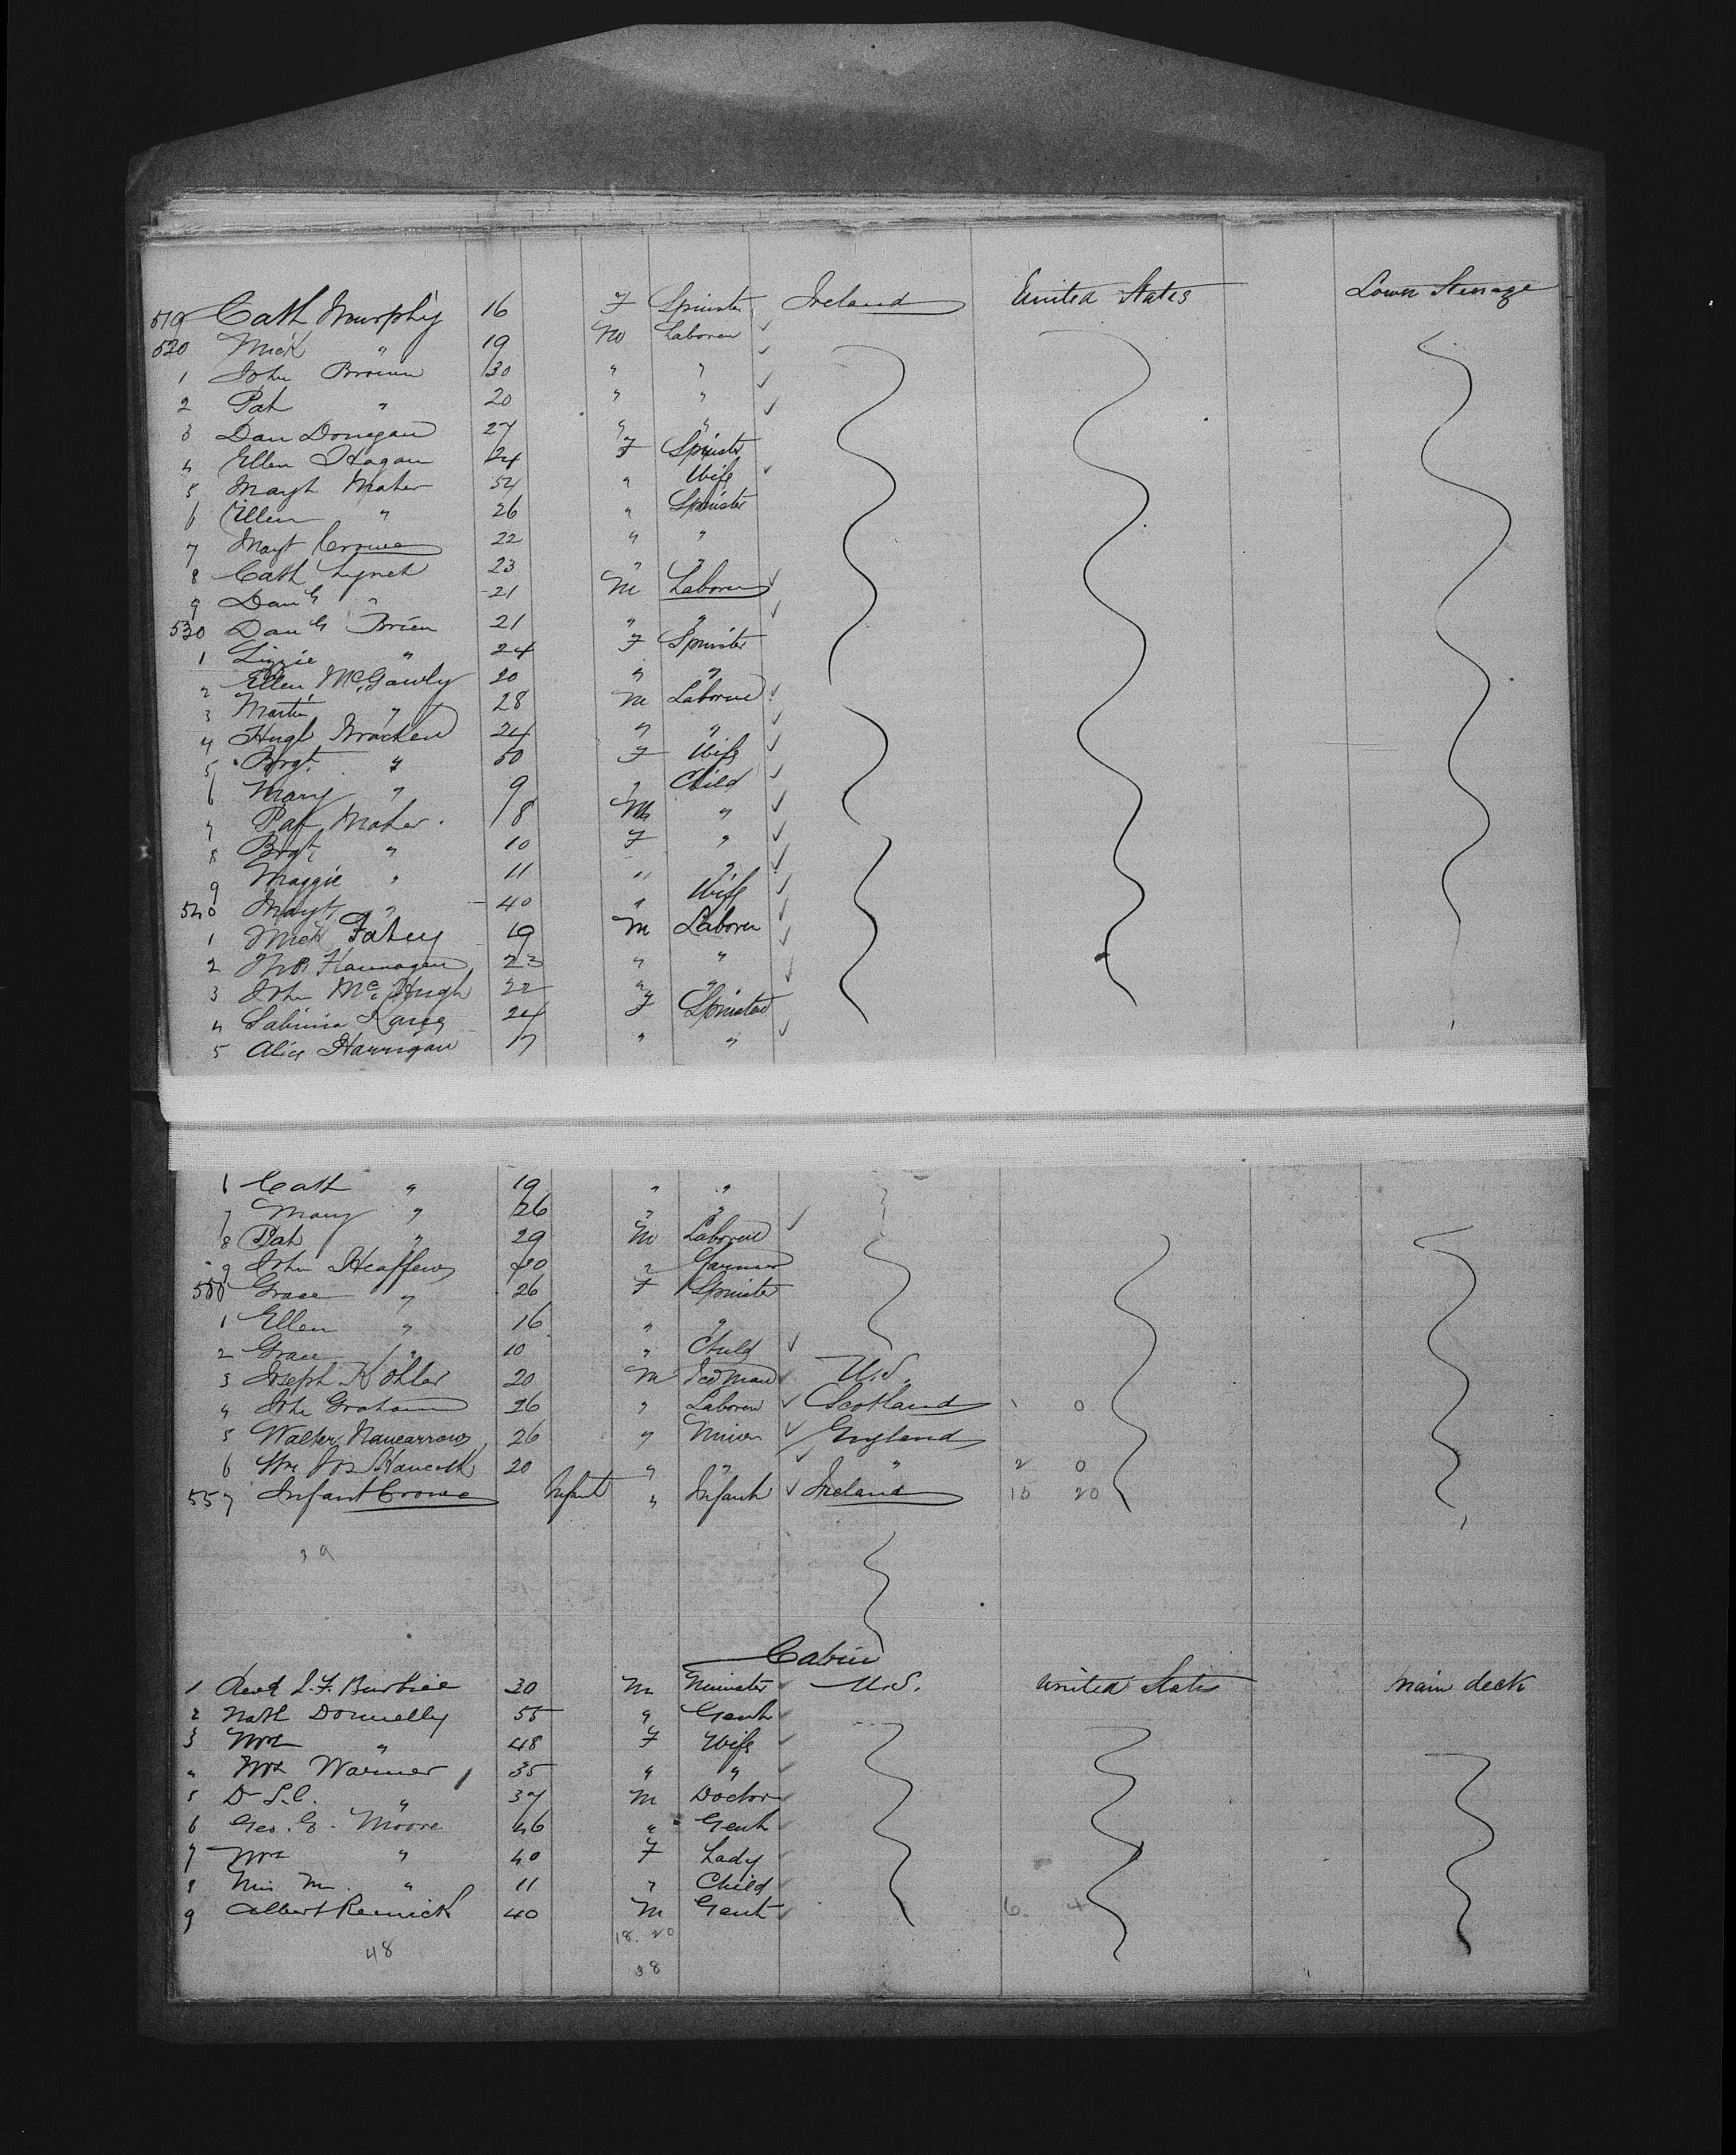 519 Cath Murphy 16 F Spinster Ireland United States Lower Steerage
520 Mick " 19 M Laborer
1 John Brown 30 " "
2 Pat " 20 " "
3 Dan Donegan 27 " "
4 Ellen Hagan 24 F Spinster
5 Margt Maher 54 " Wife
6 Ellen " 26 " Spinster
7 Margt Crowe 22 " "
8 Cath Lynch 23 " "
9 Danl " 21 M Laborer
530 Danl Brien 21 " "
1 Lizzie " 24 F Spinster
2 Ellen McGawly 20 " "
3 Martin " 28 M Laborer
4 Hugh Bracken 24 " "
5 Brgt " 50 F Wife
6 Mary " 9 " Child
7 Pat Maher 8 M "
8 Brgt " 10 F "
9 Maggie " 11 " "
540 Margt " 40 " Wife
1 Mick Fahey 19 M Laborer
2 Thos Flannagan 23 " "
3 John McHugh 22 " "
4 Sabinia 24 F Spinster
5 Alice Hannigan 17 " "
6 Cath " 19 " "
7 Mary " 26 " "
8 Pat " 29 M Laborer
9 John Heaffew " Farmer
550 Grace " 26 F Spinster
1 Ellen " 16 " "
2 Grace " 10 " Child
3 Joseph Kohler 20 M U.S.
4 John Graham 26 " Laborer Scotland 1 0
5 Walter Nancarrow 26 " Miner England
6 Wm Hancock 20 " " " 2 0
557 Infant Crowe Infant " Infant Ireland 18 20
39
Cabin
1 Revd S. F. 30 M Minister U.S. United States Main deck
2 Nath Donnelly 55 " Gent
3 Mrs " 48 F Wife
4 Mrs Warner 35 " "
5 Dr S.C. " 37 M Doctor
6 Geo. G. Moore 46 " Gent
7 Mrs " 40 F Lady
8 Miss M. " 11 " Child
9 Albert Remick 40 M Gent 6 4
48
18. 20
38